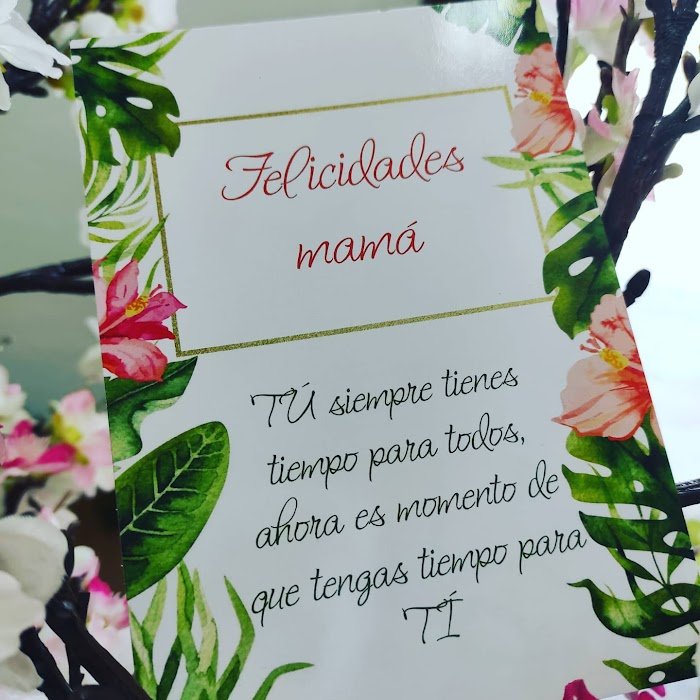 Felicidades
mamá
TÚ siempre tienes
tiempo para todos,
ahora es momento de
que tengas tiempo para
TÍ